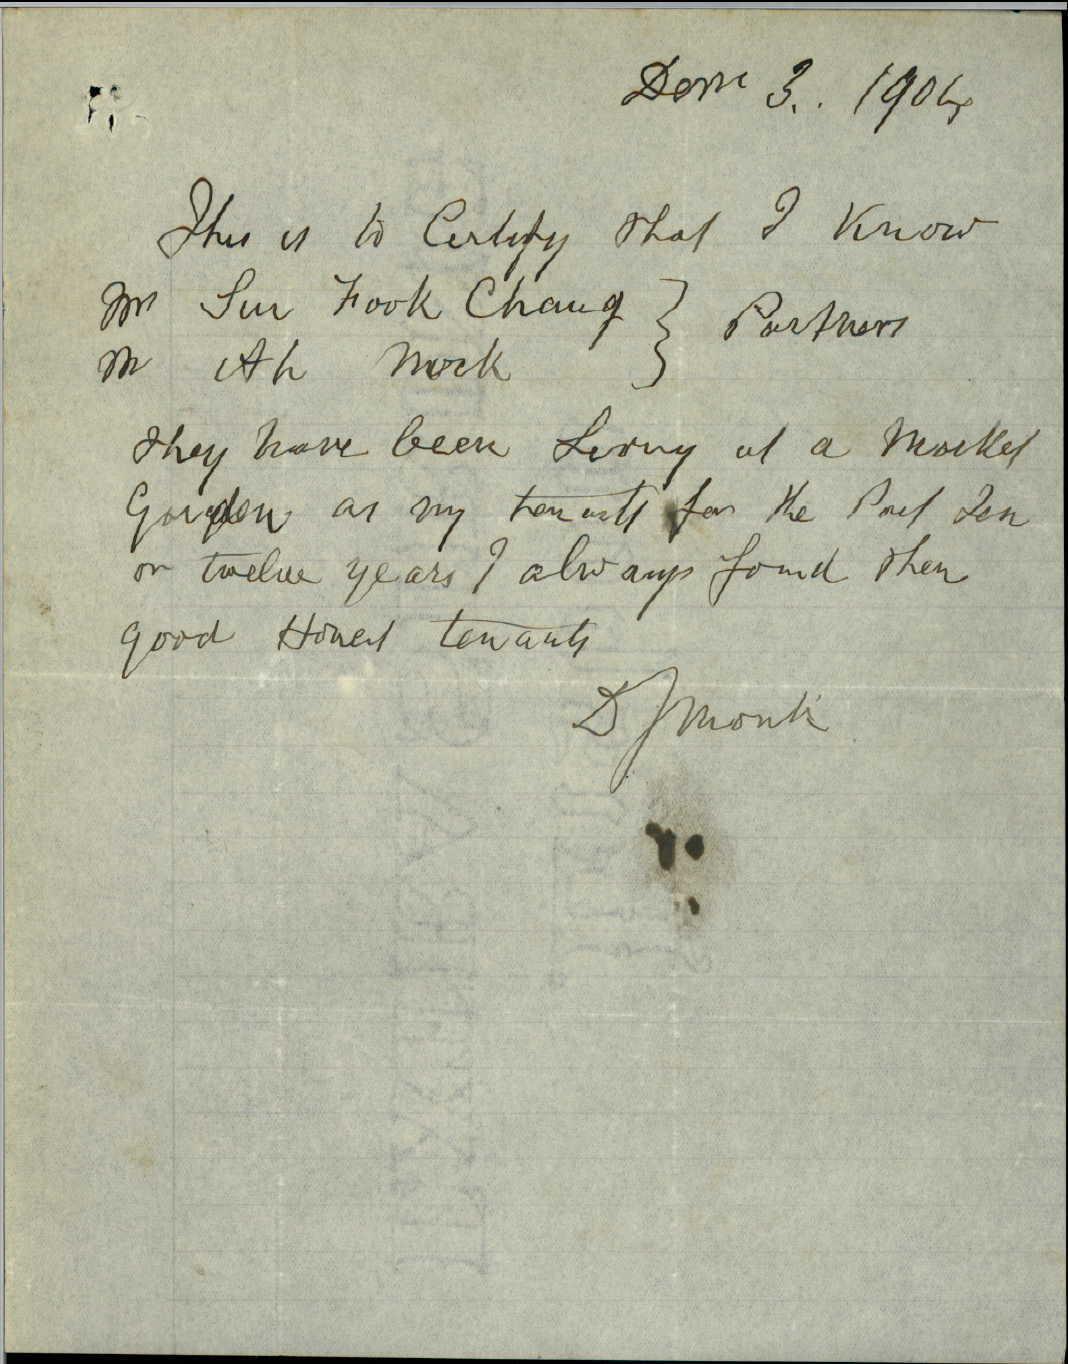 Decm 3. 1904
This is to Certify that I Know
Mr Sun Fook Chang } Partners
Mr Ah Mock
they have been Living at a Market
Garden as my tenants for the Past Ten
or twelve years I always found them
good Honest tenants
D J Monk